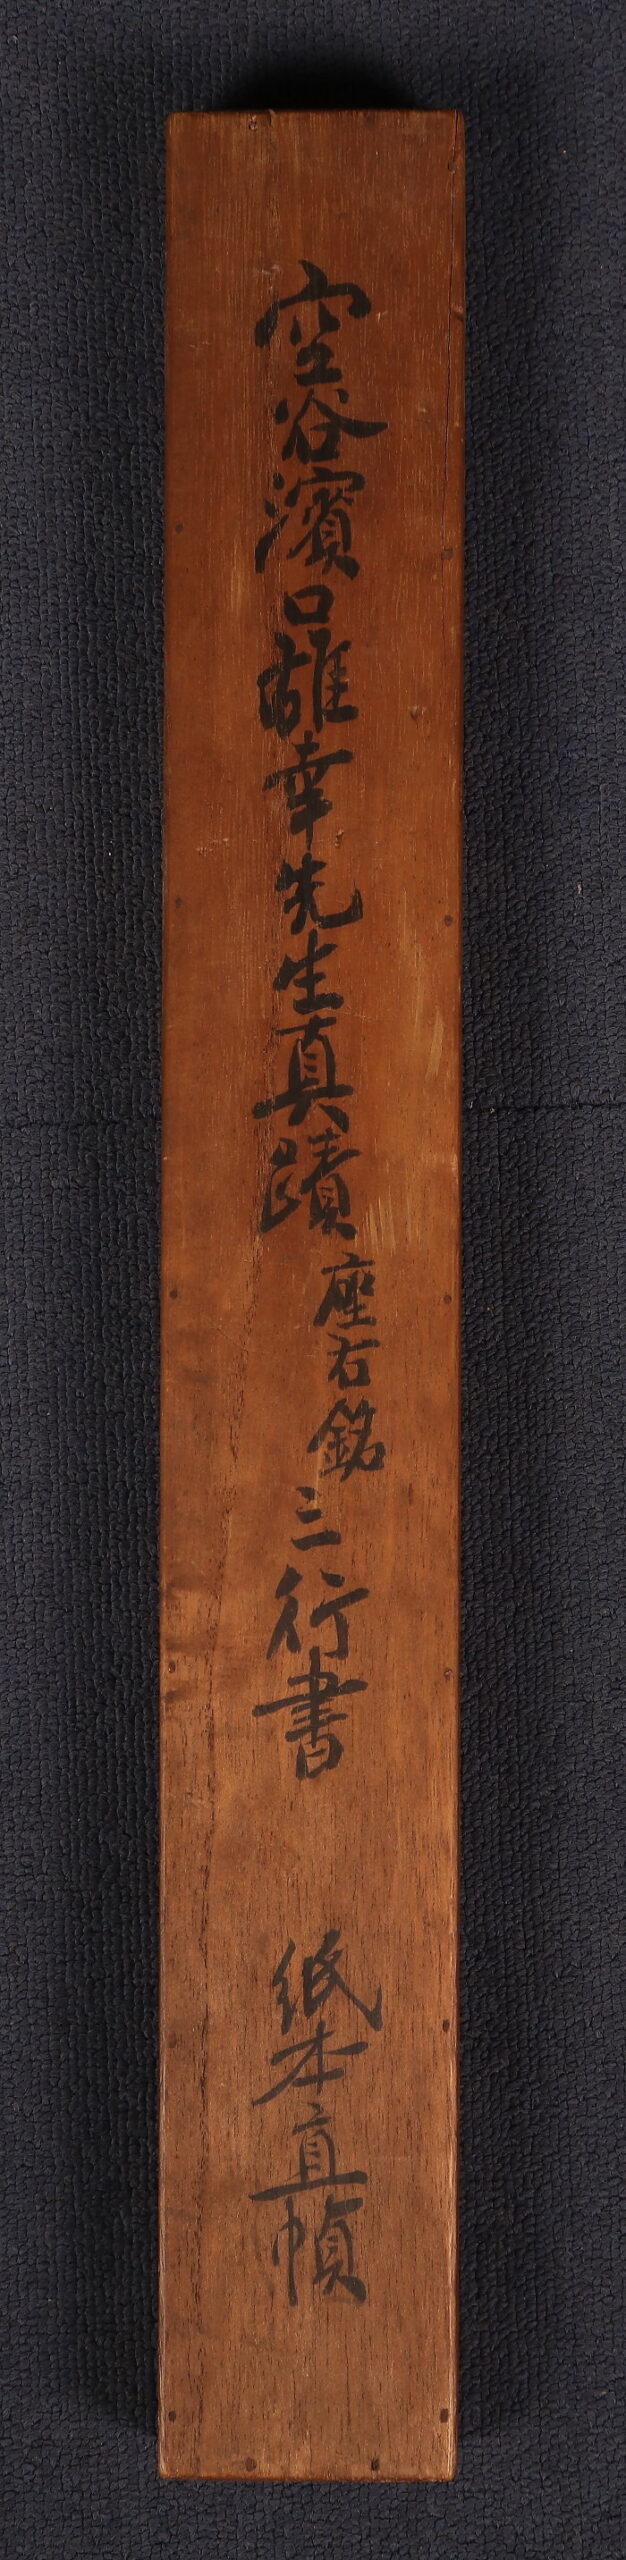 空谷濱口雄幸先生真蹟座右銘三行書　紙本直幀